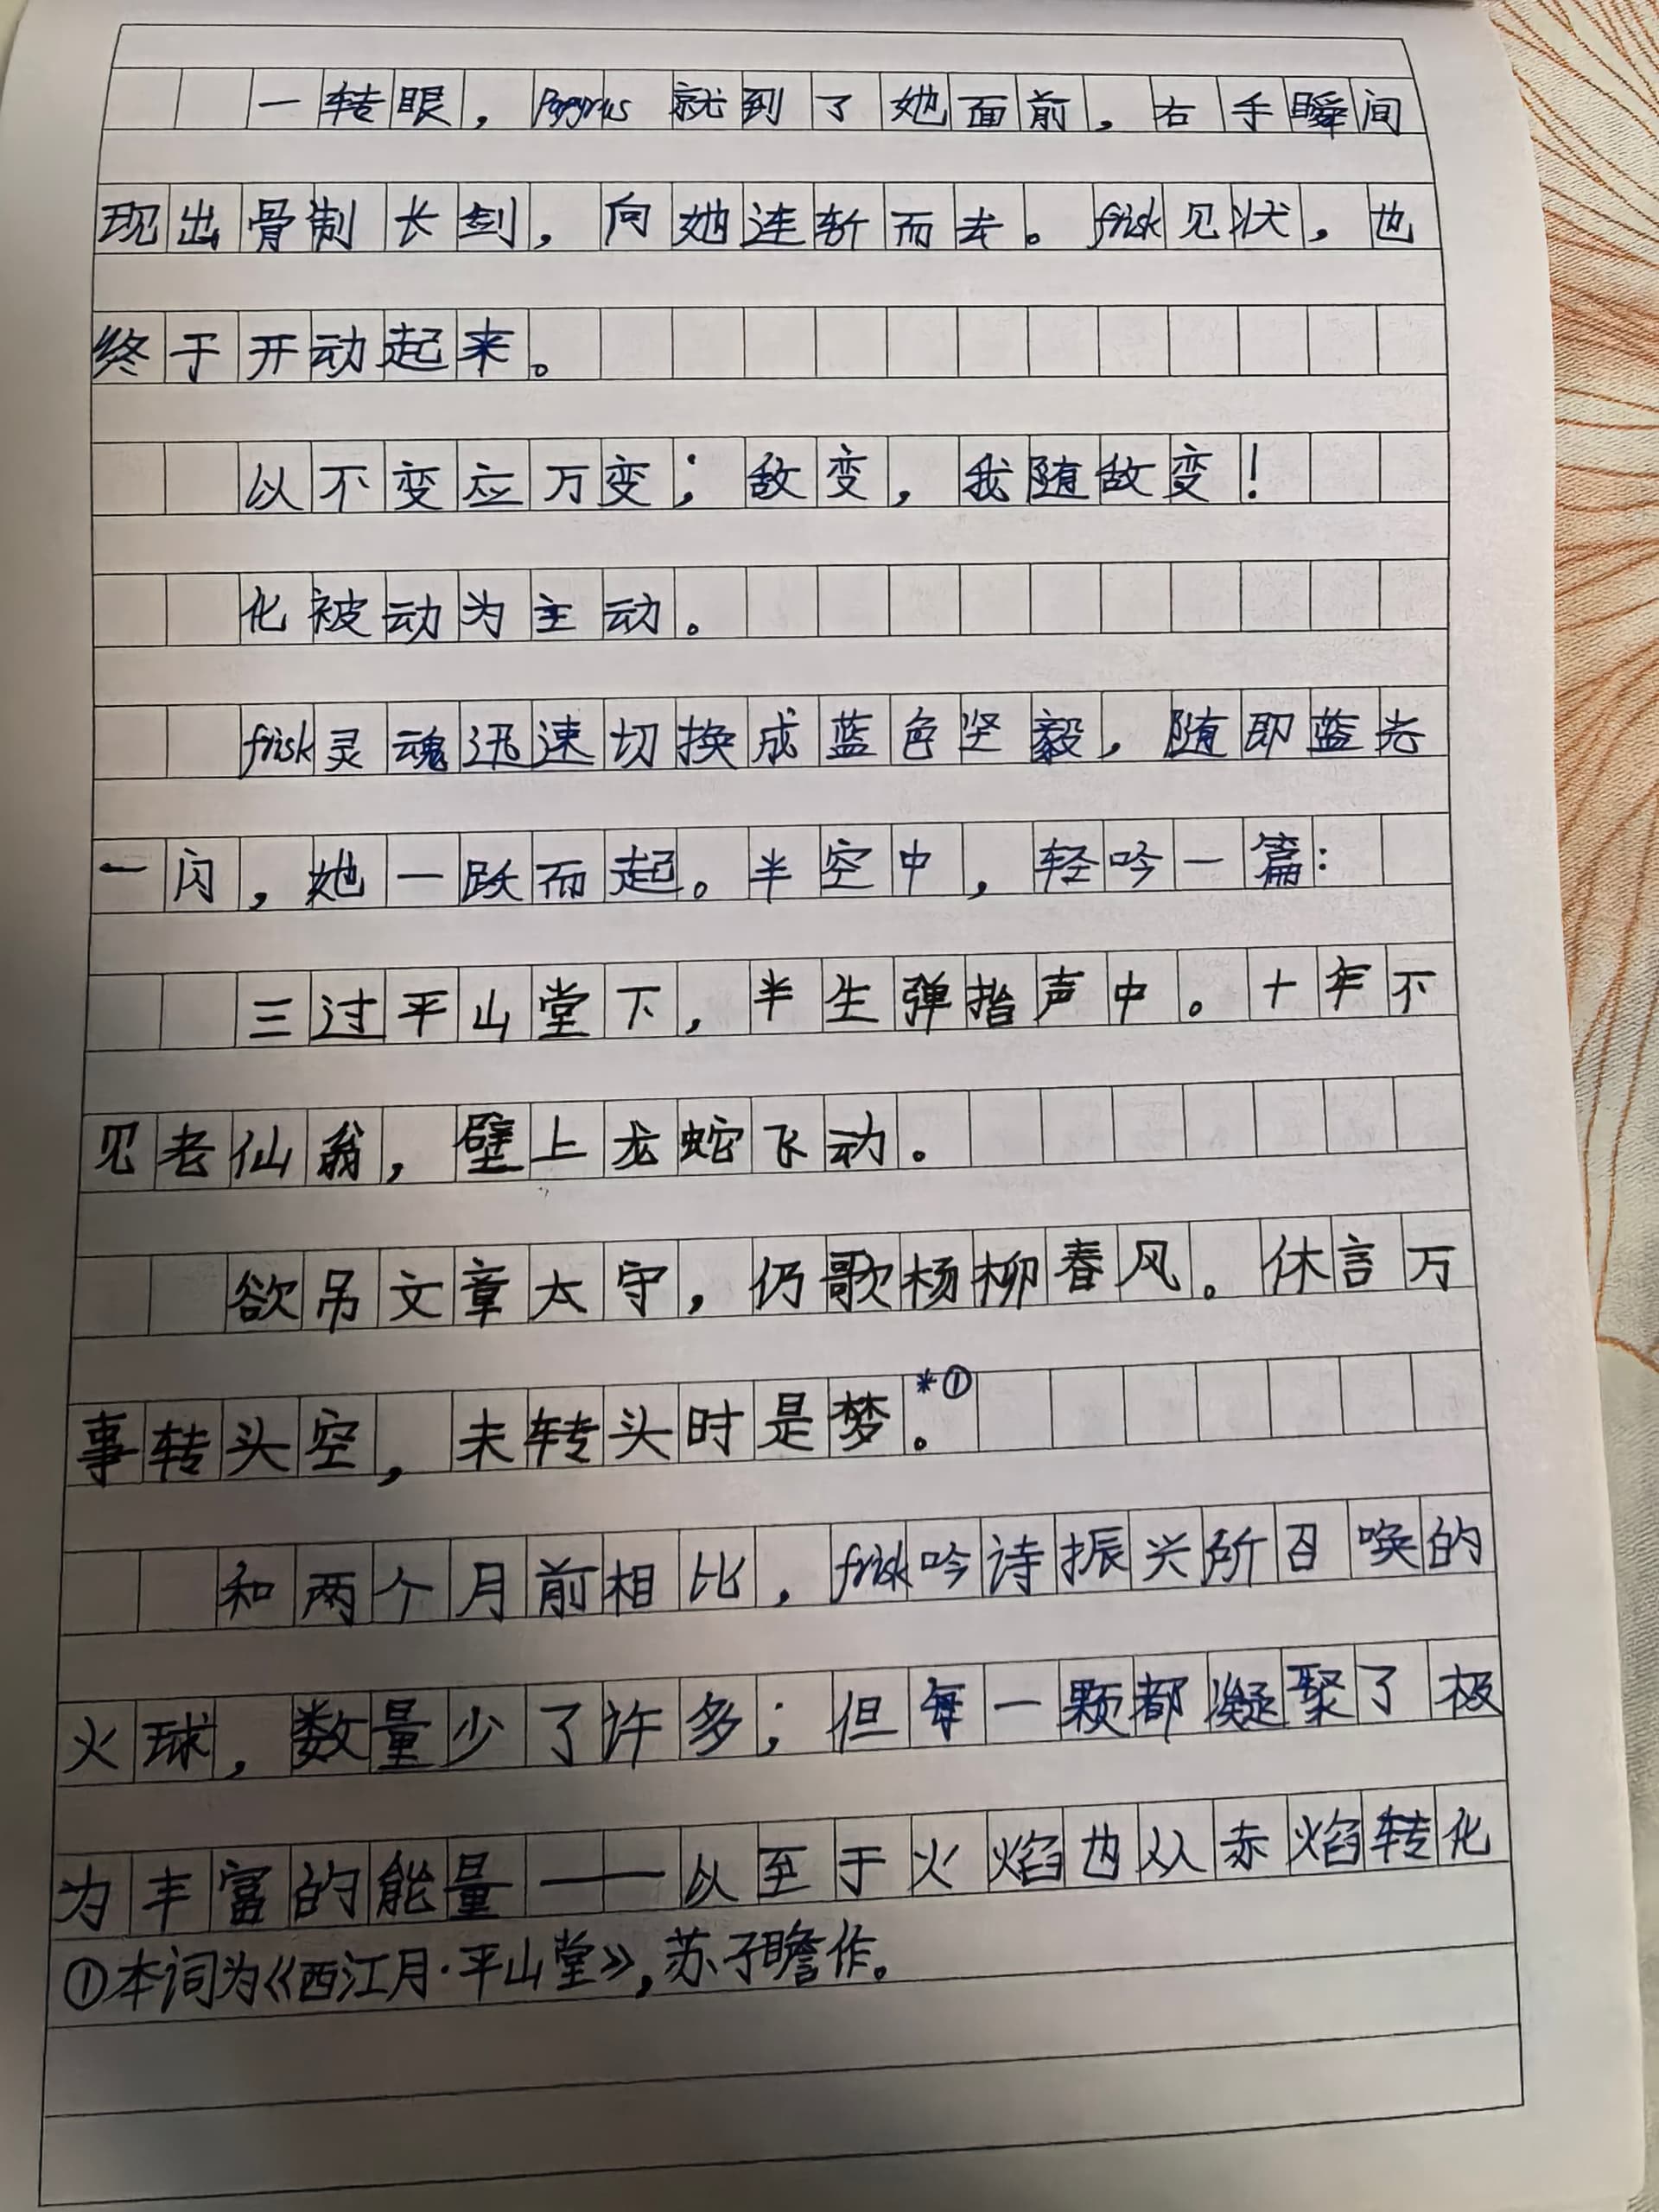 一转眼，Papyrus就到了她面前，右手瞬间
现出骨制长剑，向她连斩而去。frisk见状，也
终于开动起来。
以不变应万变；敌变，我随敌变！
化被动为主动。
frisk灵魂迅速切换成蓝色坚毅，随即蓝光
一闪，她一跃而起。半空中，轻吟一篇：
三过平山堂下，半生弹指声中。十年不
见老仙翁，壁上龙蛇飞动。
欲吊文章太守，仍歌杨柳春风。休言万
事转头空，未转头时是梦。*①
和两个月前相比，frisk吟诗振兴所召唤的
火球，数量少了许多；但每一颗都凝聚了极
为丰富的能量——以至于火焰也从赤焰转化
①本词为《西江月·平山堂》，苏子瞻作。